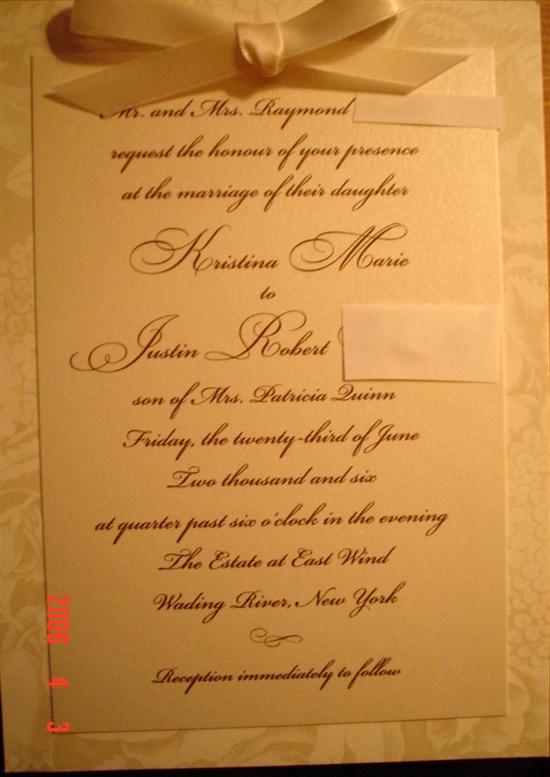 Mr. and Mrs. Raymond
request the honour of your presence
at the marriage of their daughter
Kristina Marie
to
Justin Robert
son of Mrs. Patricia Quinn
Friday, the twenty-third of June
Two thousand and six
at quarter past six o'clock in the evening
The Estate at East Wind
Wading River, New York
Reception immediately to follow
2008 4 3